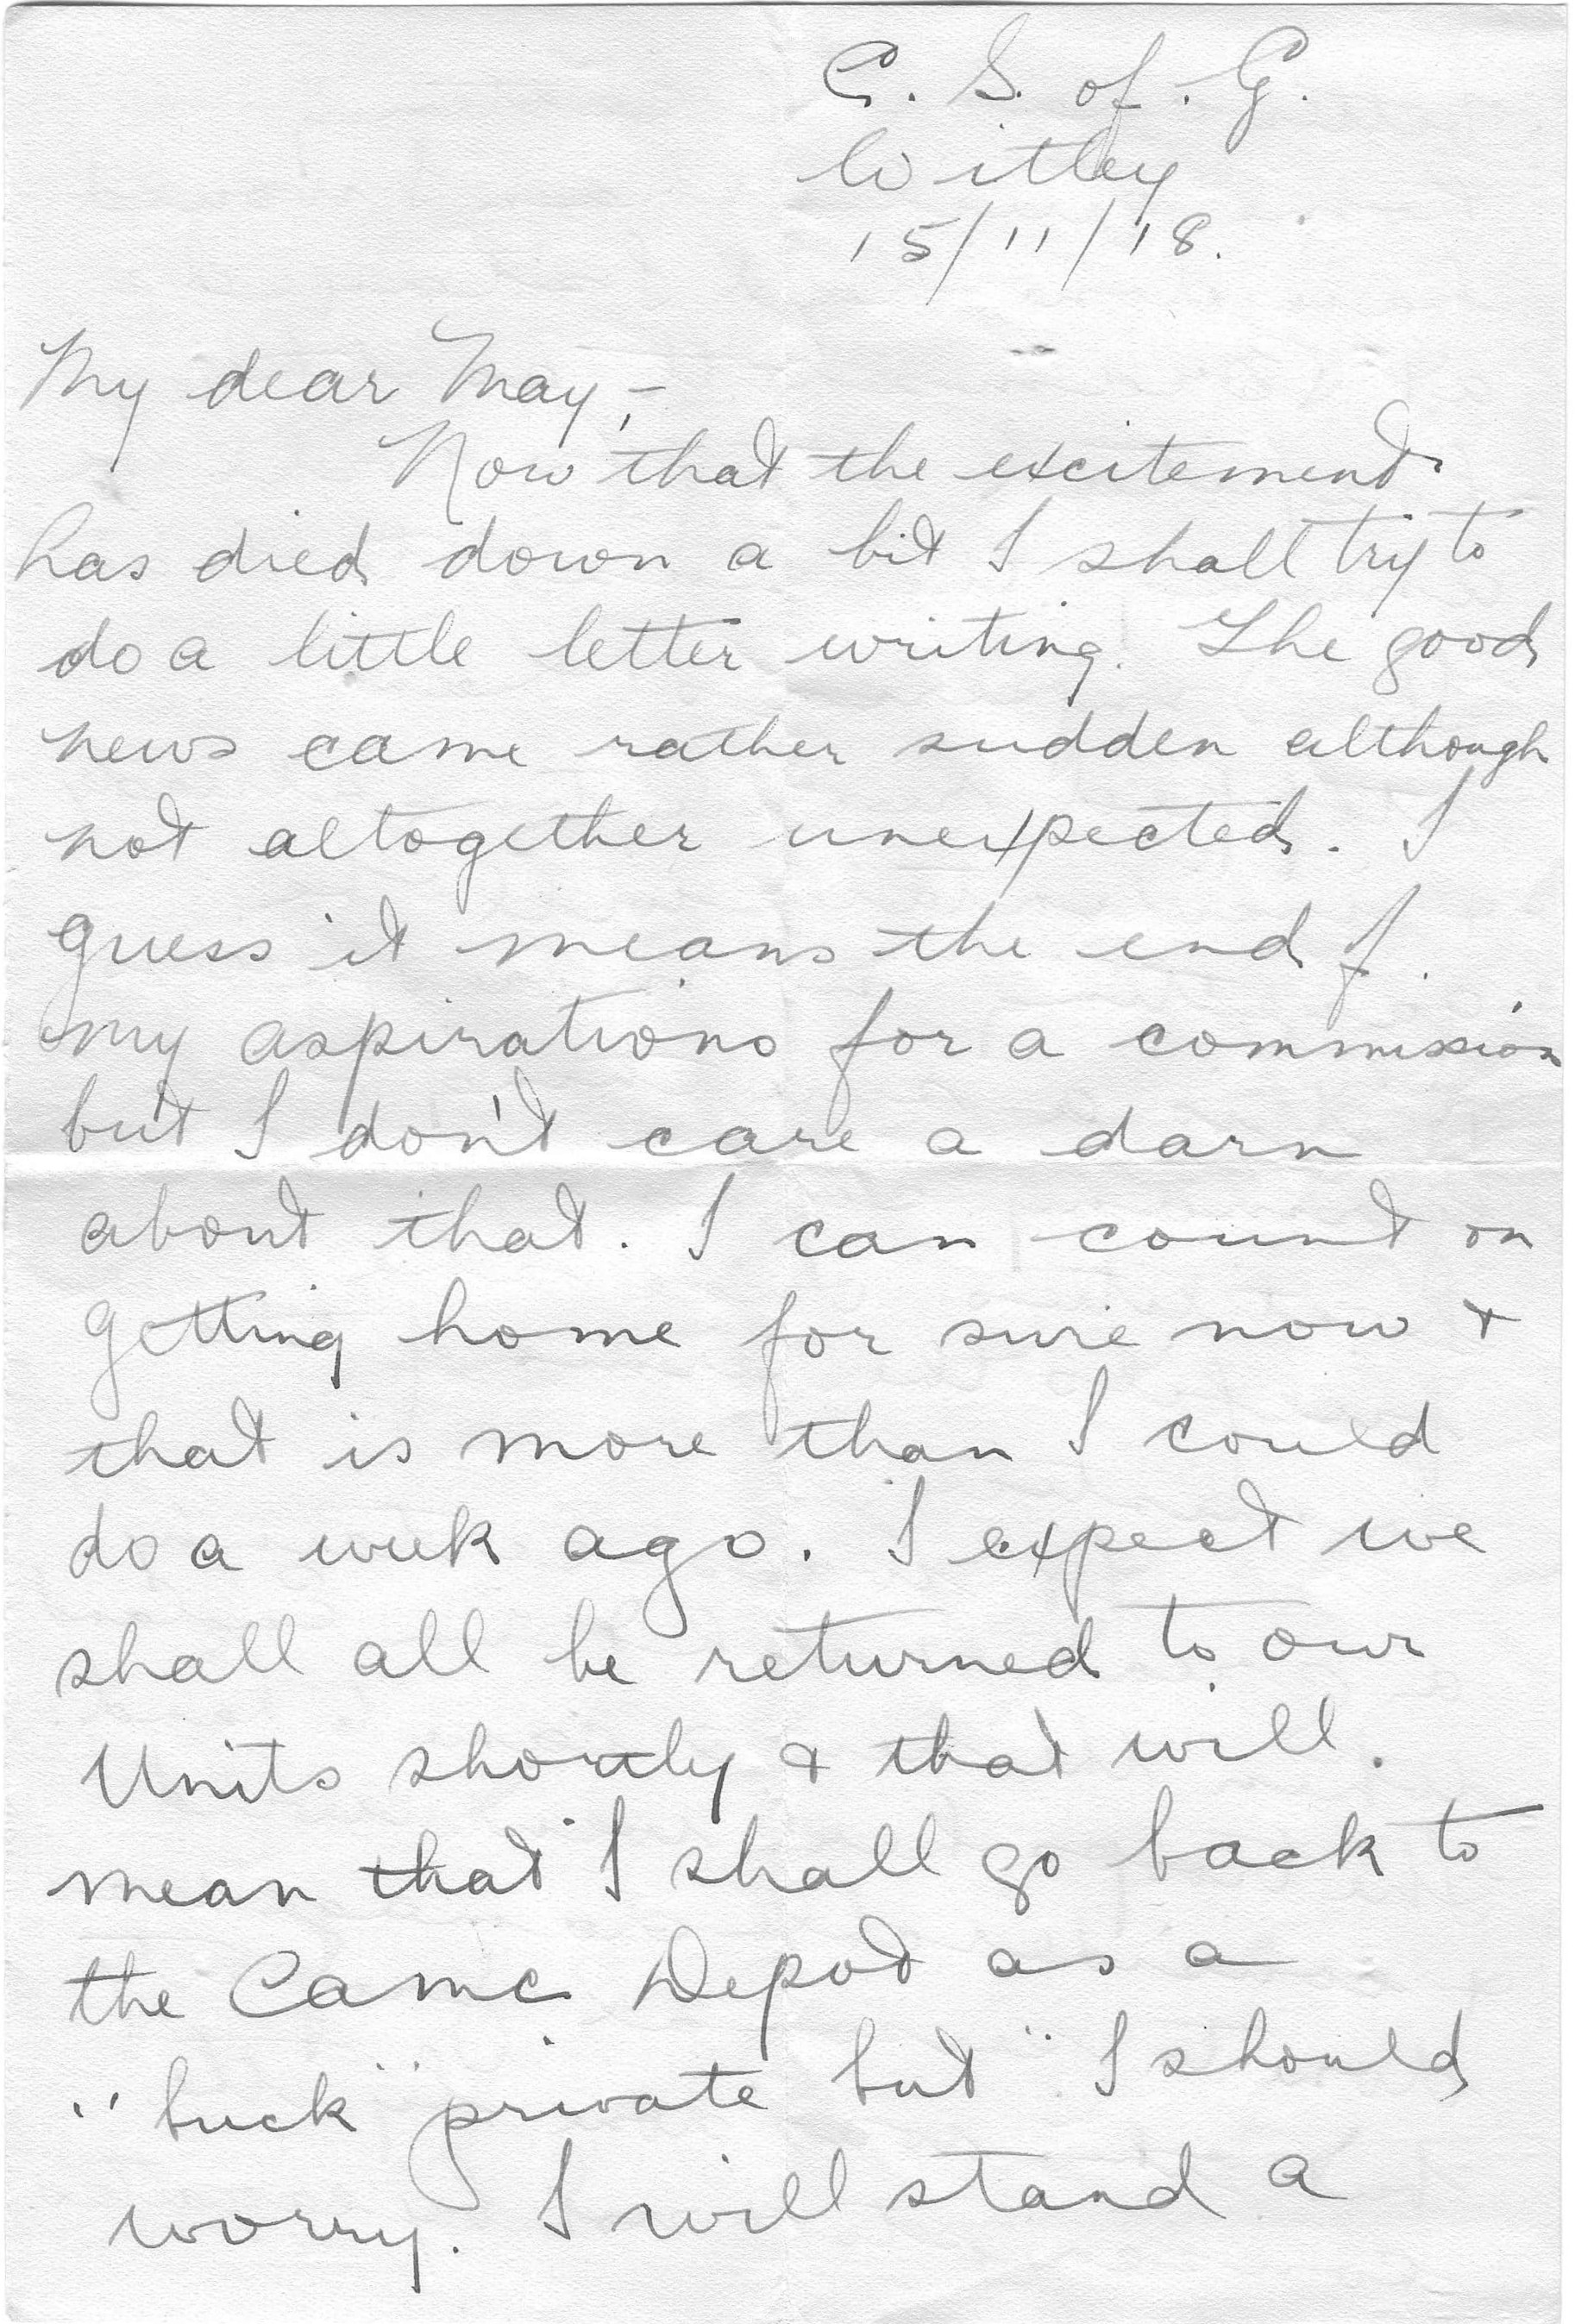 C. S. of. G.
Witley
15/11/18.
My dear May,-
Now that the excitement
has died down a bit I shall try to
do a little letter writing. The good
news came rather sudden although
not altogether unexpected. I
guess it means the end of
my aspirations for a commission
but I don't care a darn
about that. I can count on
getting home for sure now &
that is more than I could
do a week ago. I expect we
shall all be returned to our
Units shortly & that will
mean that I shall go back to
the Camc Depot as a
"buck" private but "I should
worry. I will stand a